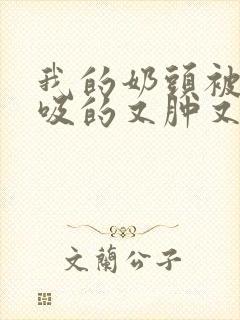 我的奶頭被
吸的又肿又
文蘭公子